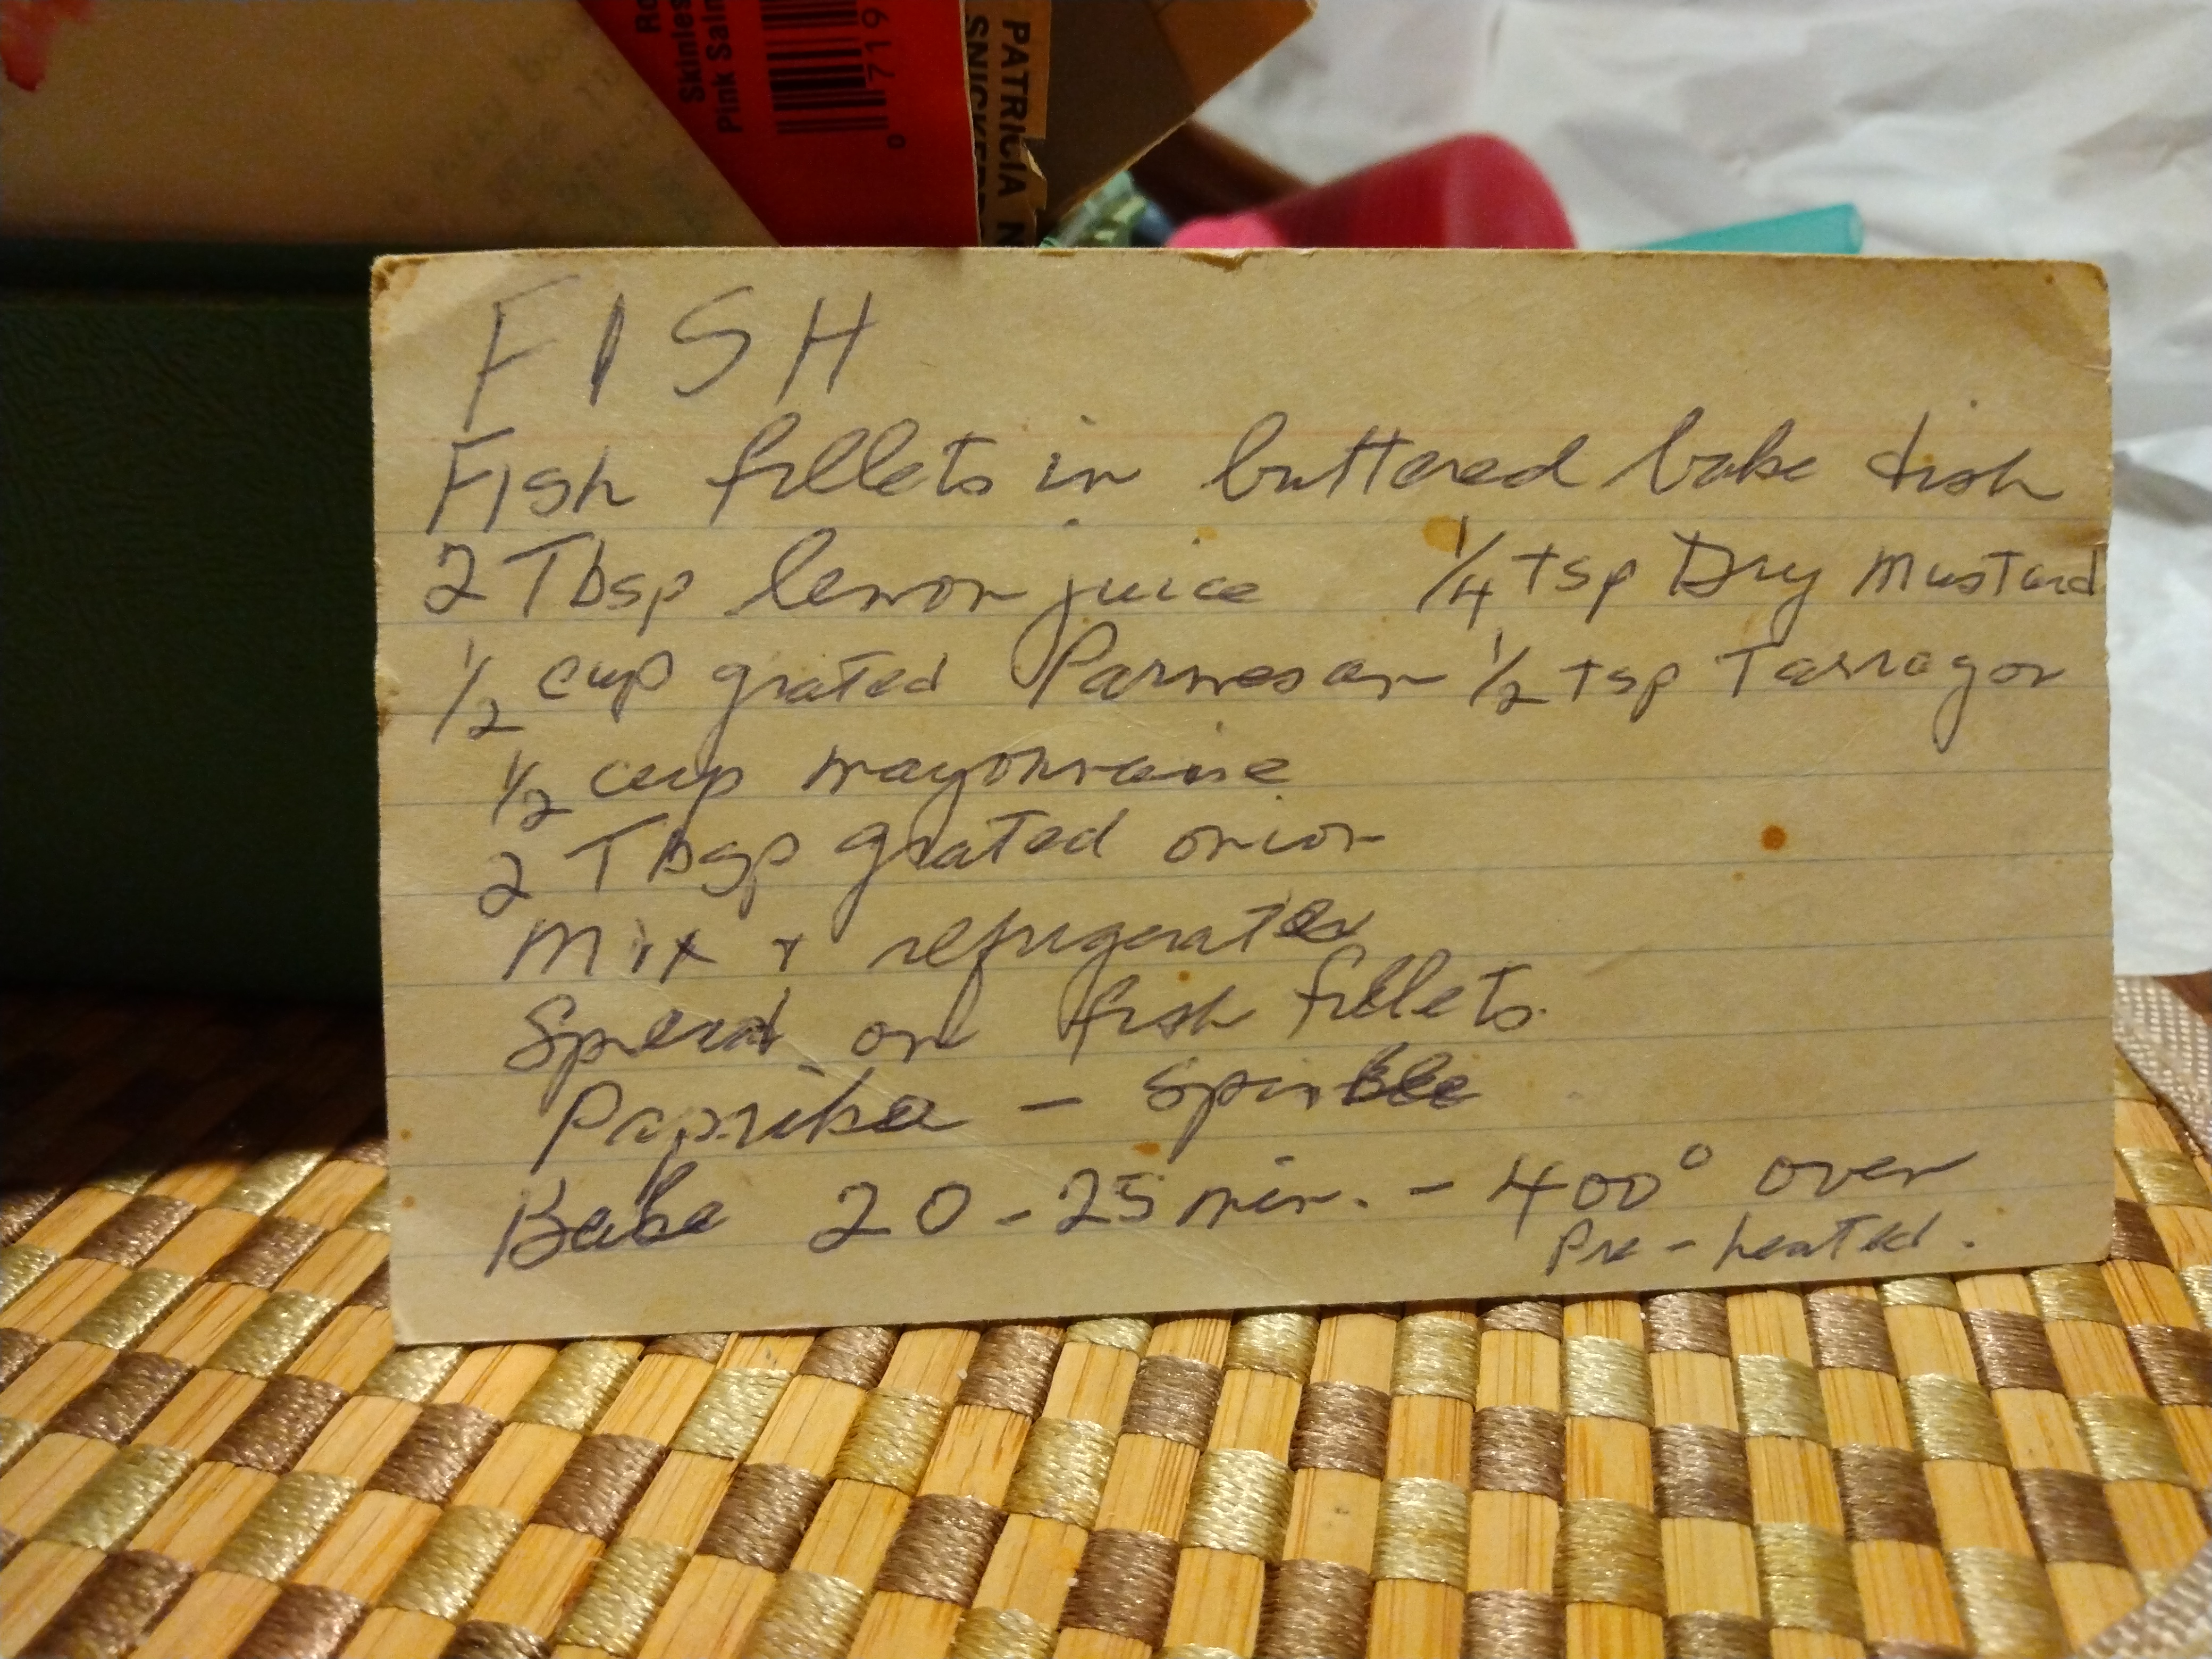 Ro
Skinles
Pink Saln
0 719
PATRICIA N
FISH
Fish fillets in buttered bake dish
2 Tbsp lemon juice 1/4 tsp Dry Mustard
1/2 cup grated Parmesan 1/2 tsp Tarragon
1/2 cup mayonnaise
2 Tbsp grated onion
Mix + refrigerate
Spread on fish fillets.
Paprika - Sprinkle
Bake 20-25 min. - 400° oven
Pre-heated.